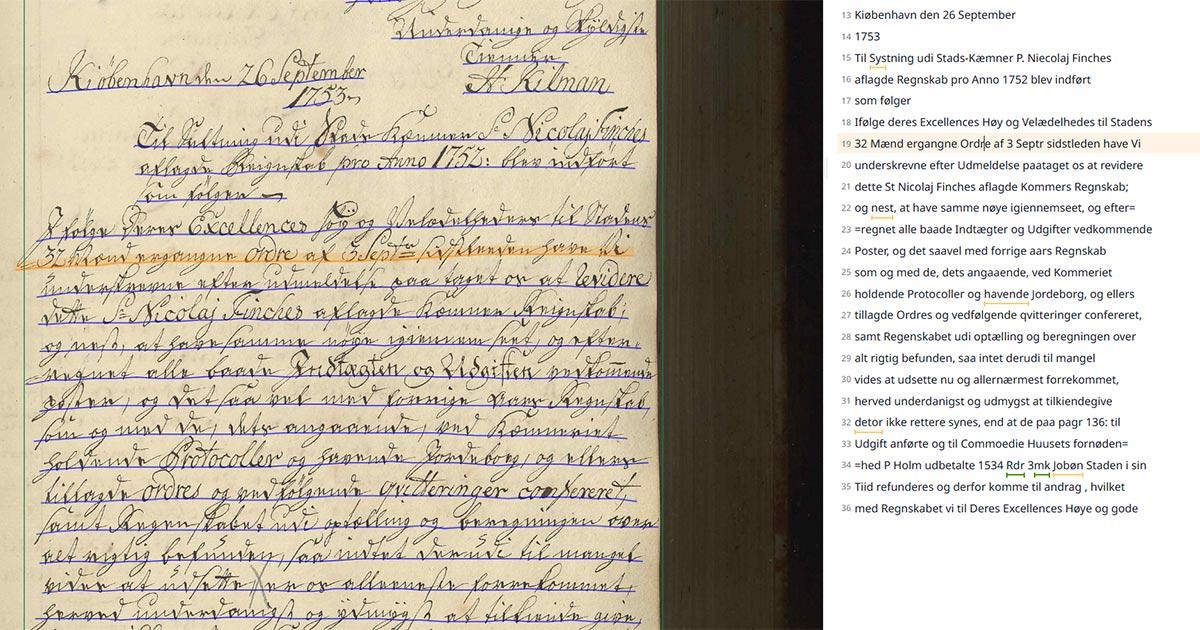 Underdanige og Skyldigste
Tienner
Kiøbenhavn den 26 September
1753
H Kilman
udi Stads Kæmner Sr Nicolaj Finches
aflagde Reignskab pro Anno 1752: blev indført
som følger
Ifølge Deres Excellences Høy og Velædelheders til Stadens
32 Mænd ergangne Ordre af 3 Septr sidstleeden have Vi
underskrevne efter udmeldelse paa taget os at Revidere
dette Sr Nicolaj Finches aflagde Kæmner Reignskab;
og nest, at have samme nøye igiennem seet, og efter=
=regnet alle baade Indtægter og Udgifter vedkommende
poster, og det saa vel med forrige Aars Regnskab,
som og med de, dets angaaende, ved Kæmneriet
holdende Protocoller og havende Jordebog, og ellers
tillagde Ordres og vedfølgende qvitteringer confereret,
samt Regenskabet udi optælling og beregningen over
alt rigtig befunden, saa indtet derudi til mangel
vides at udsætte, er os allerneste forrekommet,
herved underdanigst og ydmygst at tilkiende give,
13 Kiøbenhavn den 26 September
14 1753
15 Til Systning udi Stads-Kæmner P. Niecolaj Finches
16 aflagde Regnskab pro Anno 1752 blev indført
17 som følger
18 Ifølge deres Excellences Høy og Velædelhedes til Stadens
19 32 Mænd ergangne Ordre af 3 Septr sidstleden have Vi
20 underskrevne efter Udmeldelse paataget os at revidere
21 dette St Nicolaj Finches aflagde Kommers Regnskab;
22 og nest, at have samme nøye igiennemseet, og efter=
23 =regnet alle baade Indtægter og Udgifter vedkommende
24 Poster, og det saavel med forrige aars Regnskab
25 som og med de, dets angaaende, ved Kommeriet
26 holdende Protocoller og havende Jordeborg, og ellers
27 tillagde Ordres og vedfølgende qvitteringer confereret,
28 samt Regenskabet udi optælling og beregningen over
29 alt rigtig befunden, saa intet derudi til mangel
30 vides at udsette nu og allernærmest forrekommet,
31 herved underdanigst og udmygst at tilkiendegive
32 detor ikke rettere synes, end at de paa pagr 136: til
33 Udgift anførte og til Commoedie Huusets fornøden=
34 =hed P Holm udbetalte 1534 Rdr 3mk Jobøn Staden i sin
35 Tiid refunderes og derfor komme til andrag , hvilket
36 med Regnskabet vi til Deres Excellences Høye og gode